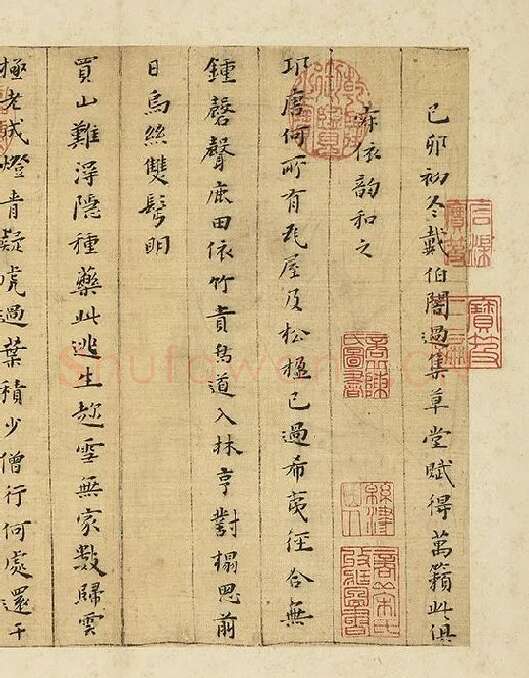 己卯初冬戴伯闇過集草堂賦得萬籟此俱
寐依韻和之
何所有瓦屋及松楹已過希夷徑合無
鍾磬聲鹿田依竹貴鳥道入林亨對榻思前
日烏絲雙鬢明
買山難淂隱種藥此逃生趁雪無家數歸雲
極老成燈青疑虎過葉積少僧行何處還干
石渠
寶笈
寶笈